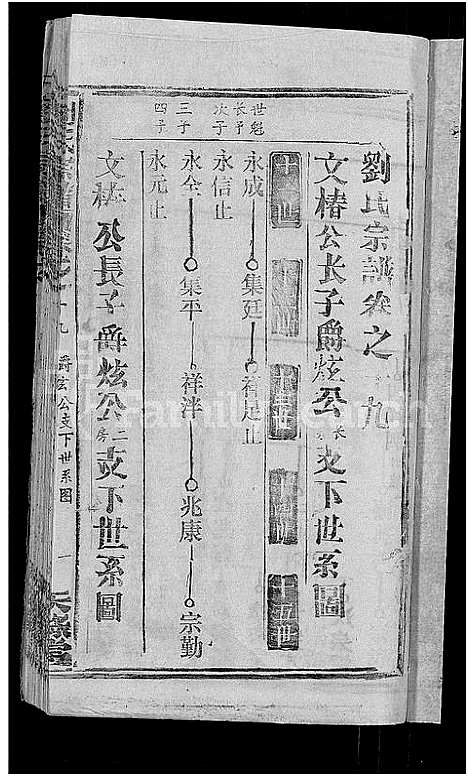 劉氏宗譜卷之十九
文椿公长子爵炫公长房支下世系圖
十一世
十五世
世魁
长子
永成 集廷 祥足止
次子
永信止
三子
永全 集平 祥泮 兆康 宗勤
四子
永元止
文椿公長子爵炫公二房支下世系圖
十九 爵炫公支下世系图 一
FamilySearch